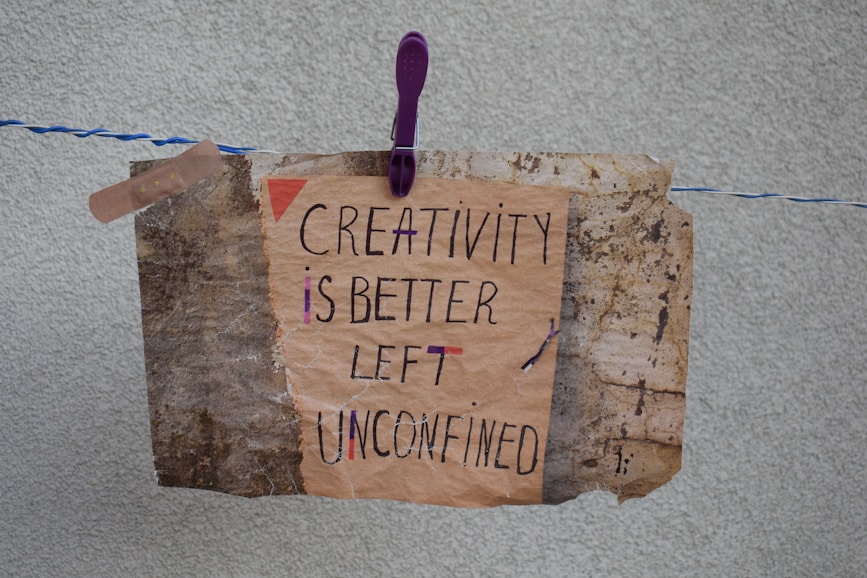 CREATiViTY
iS BETTER
LEFT
UNCONFiNED